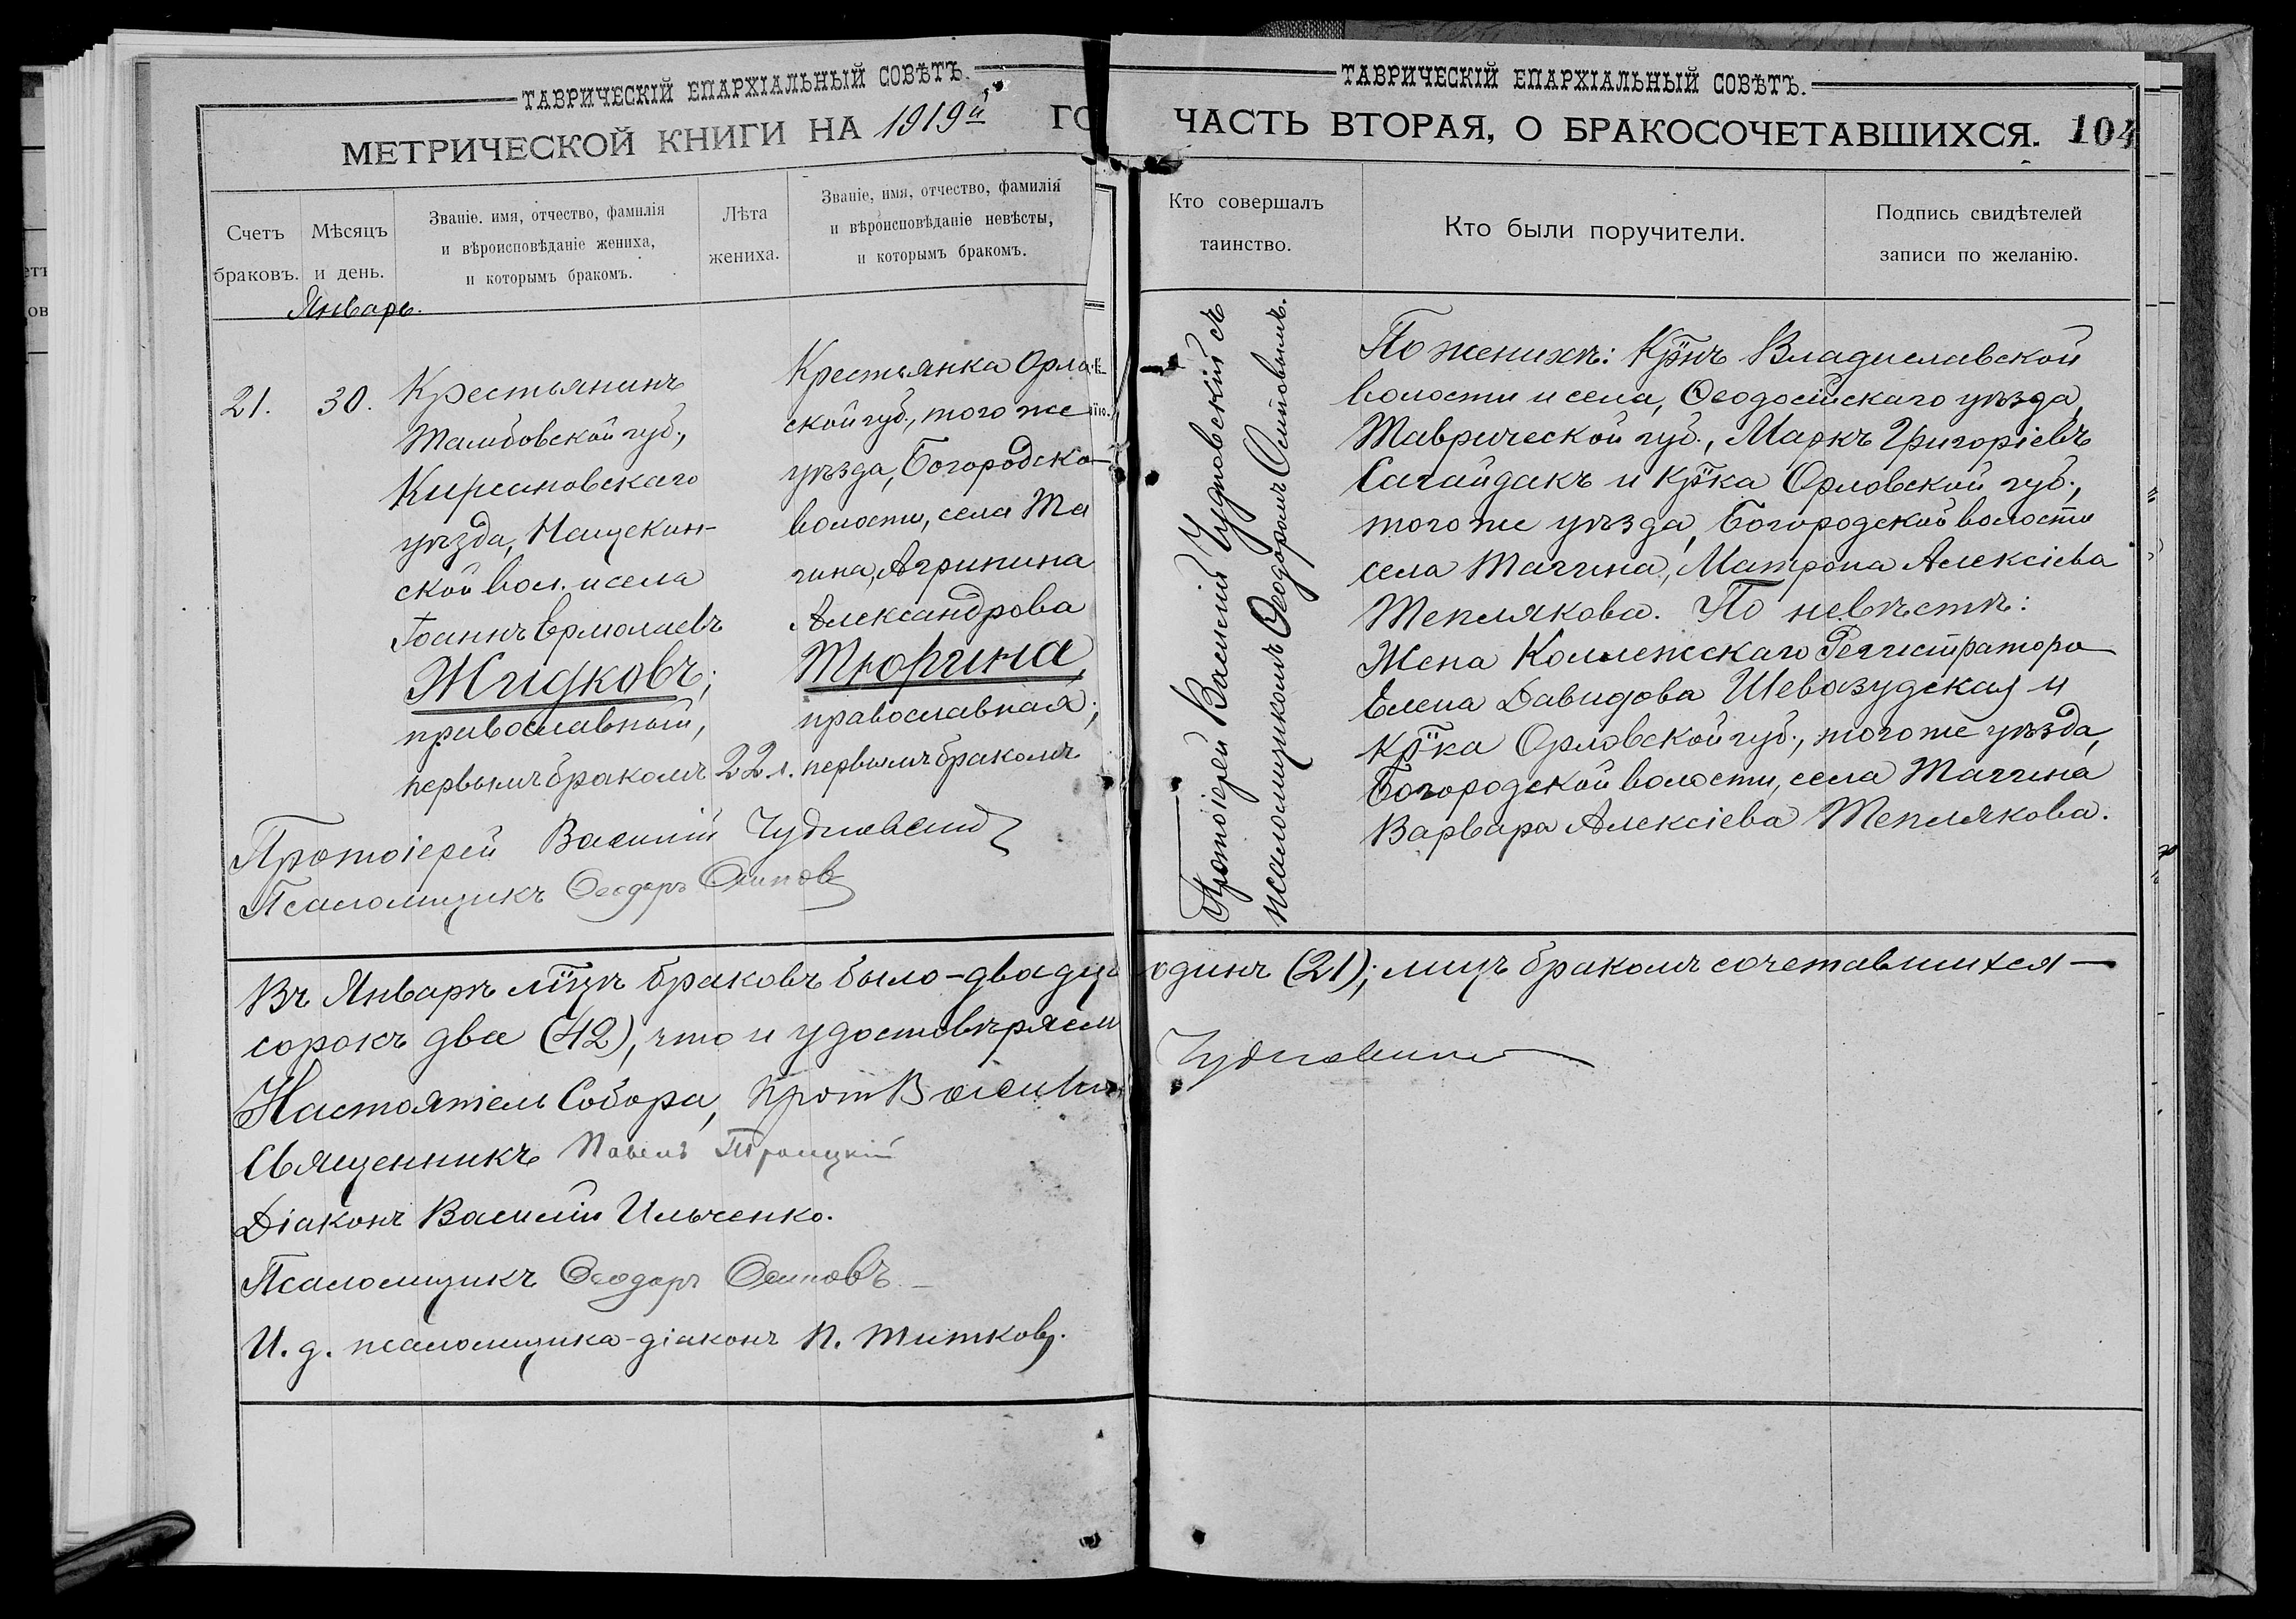 ТАВРИЧЕСКІЙ ЕПАРХІАЛЬНЫЙ СОВѢТЪ.
МЕТРИЧЕСКОЙ КНИГИ НА 1919й ГО
Счетъ браковъ.
Мѣсяцъ и день.
Званіе. имя, отчество, фамилія
и вѣроисповѣданіе жениха,
и которымъ бракомъ.
Лѣта жениха.
Званіе, имя, отчество, фамилія
и вѣроисповѣданіе невѣсты,
и которымъ бракомъ.
Январь.
21.
30.
Крестьянинъ
Тамбовской губ.,
Кирсановскаго
уѣзда, Нащекин-
ской вол. и села
Іоаннъ Ермолаевъ
Жидковъ;
православный,
первымъ бракомъ
22 л.
Крестьянка Орло
ской губ., того же
уѣзда, Богородско
волости, села Та
гина, Агрипина
Александрова
Тюрина
православная;
первымъ бракомъ
Протоіерей Василій Чудновскій
Псаломщикъ Ѳеодоръ Осипов
Въ Январѣ мцѣ браковъ было - двадца
сорокъ два (42), что и удостовѣряем
Настоятель Собора, Прот Васили
Священникъ Павелъ Троицкій
Діаконъ Василій Ильченко.
Псаломщикъ Ѳеодоръ Осиповъ
И. д. псаломщика-діаконъ П. Титковъ.
ТАВРИЧЕСКІЙ ЕПАРХІАЛЬНЫЙ СОВѢТЪ.
ЧАСТЬ ВТОРАЯ, О БРАКОСОЧЕТАВШИХСЯ. 104
Кто совершалъ
таинство.
Кто были поручители.
Подпись свидѣтелей
записи по желанію.
Протоіерей Василій Чудновскій съ
псаломщикомъ Ѳеодоромъ Осиповымъ.
По женихѣ: Крнъ Владиславской
волости и села, Ѳеодосійскаго уѣзда,
Таврической губ., Маркъ Григоріевъ
Сагайдакъ и Крка Орловской губ.,
того же уѣзда, Богородской волости
села Тагина, Матрона Алексіева
Теплякова. По невѣстѣ:
Жена Коллежскаго Регистратора
Елена Давидова Шевазудская и
Крка Орловской губ., того же уѣзда,
Богородской волости, села Тагина
Варвара Алексіева Теплякова.
одинъ (21); лицъ бракомъ сочетавшихся -
Чудновскій